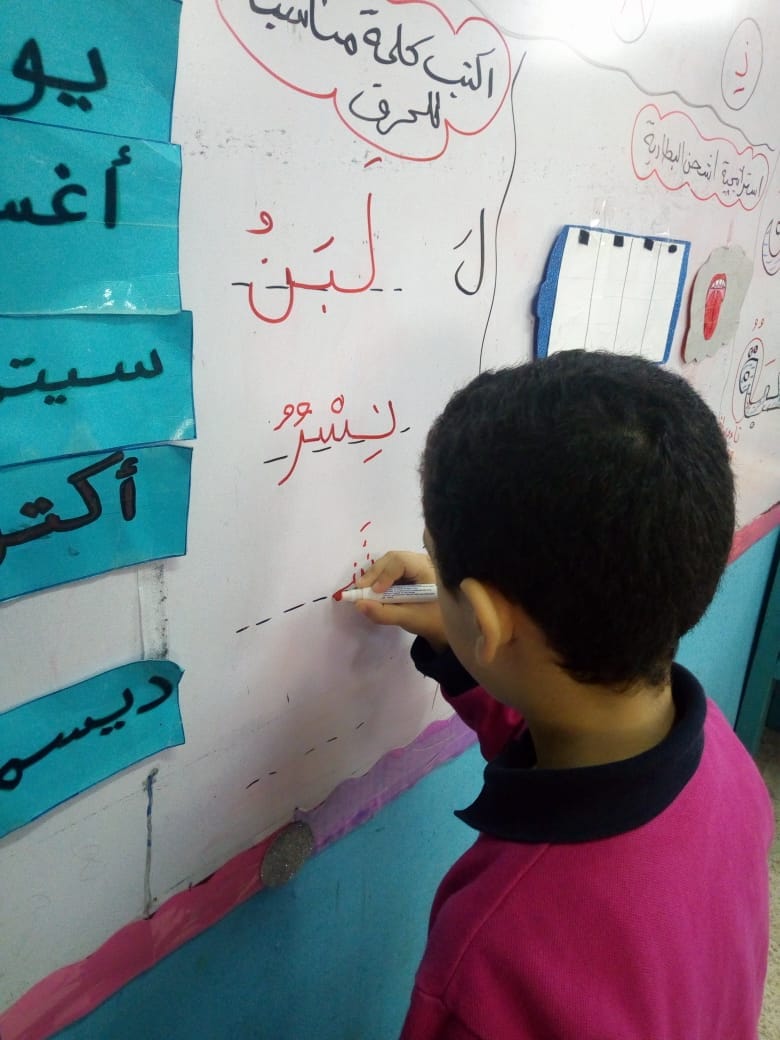 اكتب كلمة مناسبة
للحرف
لَ
لَبَنُ
نِسْرُُ
نِ
استراتيجية اشحن البطارية
يو
أغس
سيتم
أكتو
ديسم